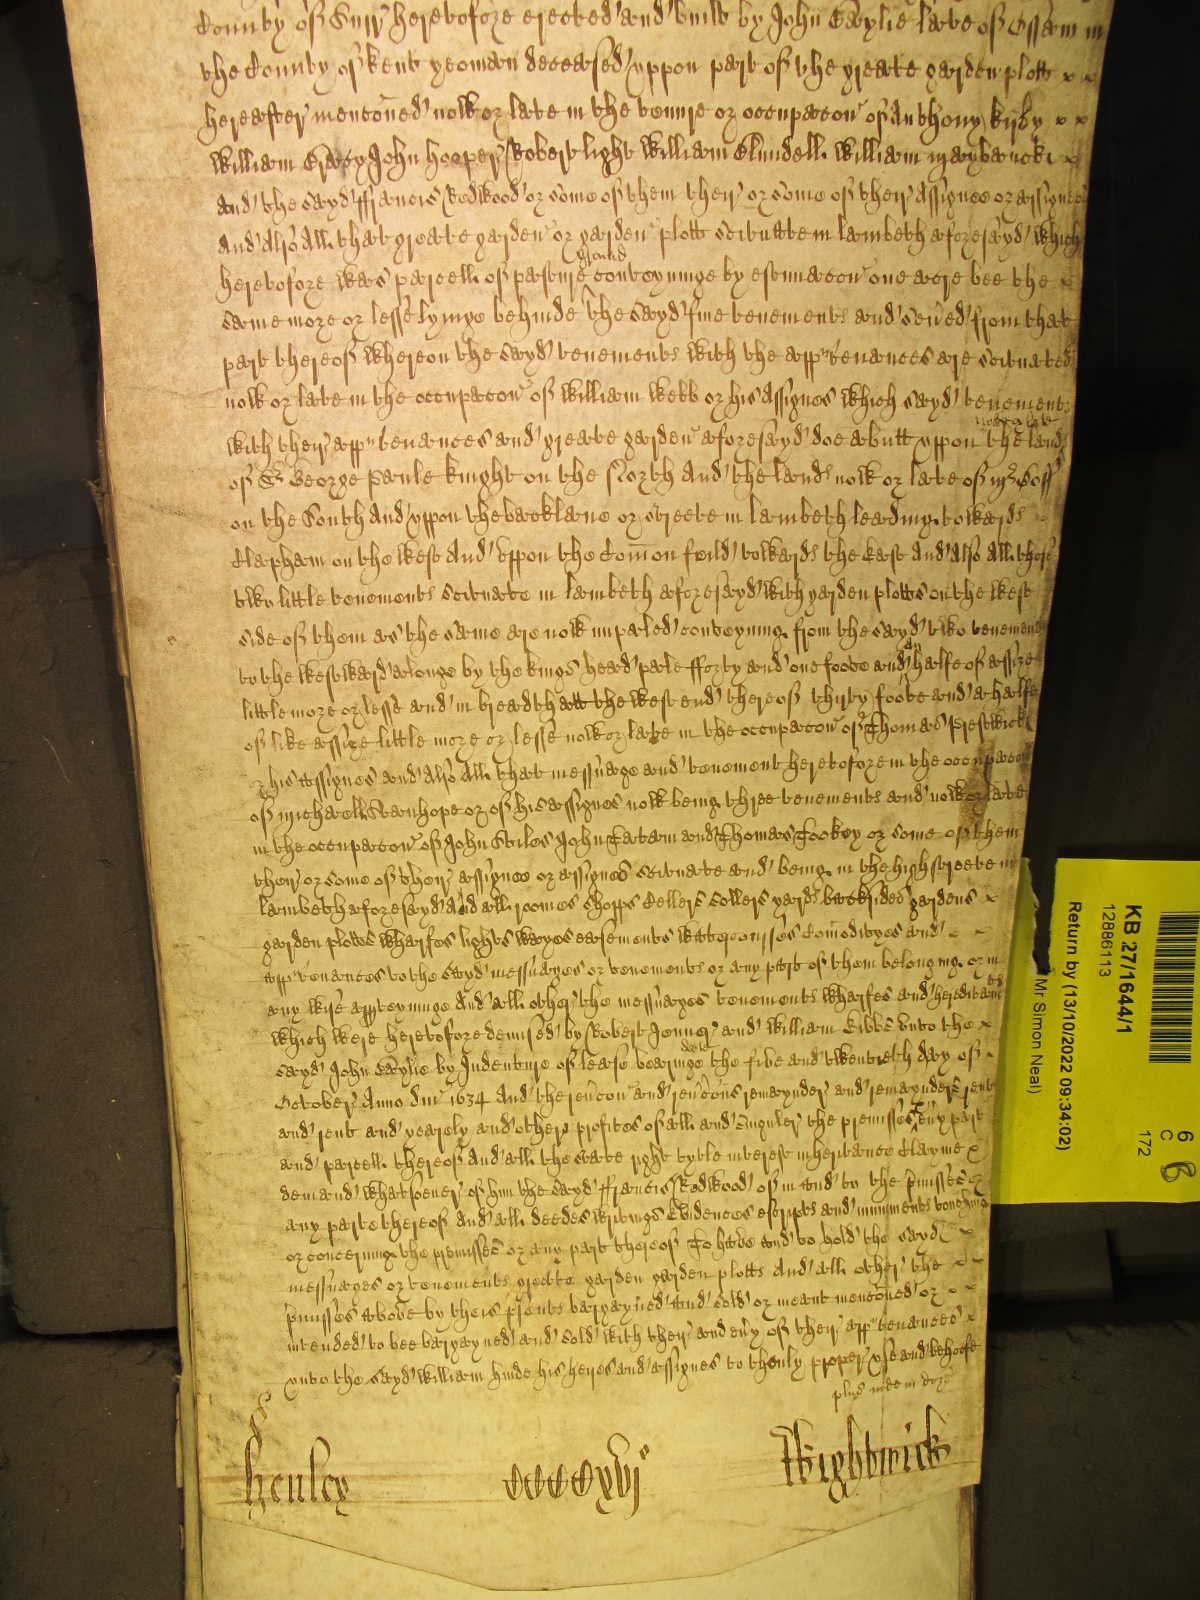 County of Surr heretofore erected and built by John Caylie late of in
the County of Kent yeoman deceased uppon part of the greate garden plott x x
hereafter mentoned now or late in the tenure or occupacon of Anthony Kirby x x
William John Hooper Robert Light William Blundell William x
and the sayd ffrancis Redwood or some of them their or some of their assignee or assignees
And also all that greate garden or garden plott scituate in Lambeth aforesayd which
ground
heretofore was parcell of pasture conteyninge by estimacon one acre bee the x
same more or lesse lyinge behinde the sayd five tenements and sev'ed from that
part thereof whereon the sayd tenements with the appurtenances are scituated
now or late in the occupacon of William Webb or his assignes which sayd tenements
now or late
with their appurtenances and greate garden aforesayd doe abutt uppon the lands
of Sr George Paule knight on the North and the lands now or late of Mr Goff
on the South and uppon the backlane or streete in Lambeth leading towards
Clapham on the West And uppon the Comon feild towards the East And also all those
two little tenements scituate in Lambeth aforesayd with garden plotts on the West
side of them as the same are now impaled conteyning from the sayd two tenements
an
to the Westward alonge by the kings head pale fforty and one foote and halfe of assize
little more or lesse and in breadth att the West end thereof thirty foote and a halfe
of like assize little more or lesse now or late in the occupacon of Thomas Prestwick
or his assignes and also all that messuage and tenement heretofore in the occupacon
of Michaell Stanhope or of his assignes now being three tenements and now or late
in the occupacon of John Stiles John Tatam and Thomas Tookey or some of them
their or some of their assignee or assignes scituate and being in the high streete in
Lambeth aforesayd And all roomes shopps Cellers sollers yards backsides gardens x
garden plotts wharfes lights wayes easements watercourses Comodityes and
appurtenances to the sayd messuages or tenements or any part of them belonging or in
any wise apperteyninge And all other the messuages tenements wharfes and hereditamts
which were heretofore demised by Robert Jenner and William Gibbs unto the x
date
sayd John Caylie by Indenture of lease bearinge the five and twentieth day of
October Anno Dni 1634 And the rev'con and rev'cons remaynder and remaynders rents
and rent and yearely and other profites of all and singuler the premisses ev'y part
and parcell thereof And all the state right tytle interest inheritance clayme x
demand whatsoever of him the sayd ffrancis Redwood of in and to the p'misses or
any parte thereof And all deedes writings Evidences escripts and muniments touching
or concerning the premisses or any part thereof To have and to hold the sayd
messuages or tenements greate garden garden plotts And all other the
p'misses above by theis p'sents bargayned and sold or meant mentoned or
intended to bee bargayned and sold with their and ev'y of their appurtenances x
unto the sayd William Hinde his heires and assignes to thonly proper use and behoofe
plus inde in dorso
Henley
CCCCxvj
Wightwick
KB 27/1644/1
12886113
Return by (13/10/2022 09:34:02)
Mr Simon Neal)
6
C
172
6